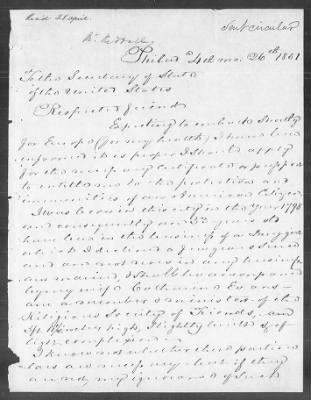 Recd 28 April.
Sent circular
Philad 4th mo. 26th 1851
To the Secretary of State
of the United States
Respected friend
Expecting to embark shortly
for Europe (for my health) I have been
informed it is proper I should apply
for the necessary Certificate or passport
to entitle me to the protection and
immunities of an American Citizen
I was born in this city in the Year 1798
and consequently am 52 years old
have been in the business of a Druggist
which I declined a few years since
and am not now in any business
am married, & shall be accompanied
by my wife Catharine & Evans
am a member & minister of the
Religious Society of Friends, and
inches high, slightly built & of
light complexion
I know not whether these particu
lars are necessary but if they
are not, my ignorance of such